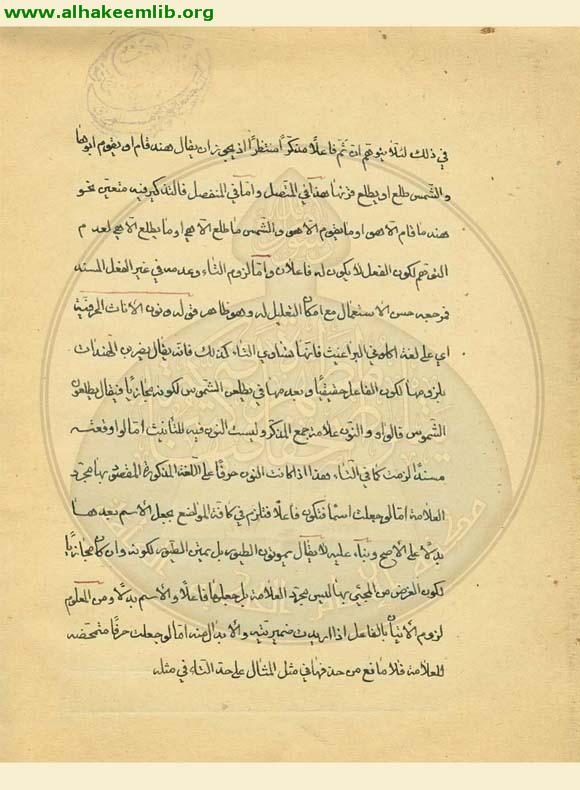 www.alhakeemlib.org
في ذلك لئلا يتوهم ان ثم فاعلًا مذكرًا منتظرًا اذ يجوز ان يقال هند قام او يقوم ابوها
والشمس طلع او يطلع قرنها هذا في المتصل واما في المنفصل فالتذكير فيه متعين نحو
هند ما قام الا هي او ما يقوم الا هي والشمس ما طلع الا هي او ما يطلع الا هي لعدم
التوهم لكون الفعل لا يكون له فاعلان واما لزوم التاء وعدمه في غير الفعل المسند
فمرجعه حسن الاستعمال مع امكان التعليل له وهو ظاهر قوله ونون الاناث الحرفية
اي على لغة اكلوني البراغيث فانها تساوي التاء كذلك فانه يقال يضربن الهندات
بلزومها لكون الفاعل حقيقيًا وبعدمها في يطلعن الشموس لكونه مجازيًا فيقال يطلعون
الشموس فالواو والنون علامة جمع المذكر وليست النون فيه للتأنيث اما لو وقعت
مسندة لزمت كما في التاء وهذا اذا كانت النون حرفًا على اللغة المذكورة المقصود بها مجرد
العلامة اما لو جعلت اسمًا فتكون فاعلًا فتلزم في كافة المواضع بجعل الاسم بعدها
بدلًا على الاصح وبناء عليه لا يقال يميتون الطيور بل يمتن الطيور لكونه وان كان مجازيًا
لكون الغرض من المجيئ بها ليس مجرد العلامة بل جعلها فاعلًا والاسم بدلًا ومن المعلوم
لزوم الاتيان بالفاعل اذا اريدت ضميريته والابدال منه اما لو جعلت حرفًا متمحضه
للعلامة فلا مانع من حذفها في مثل المثال على حد التاء في مثله